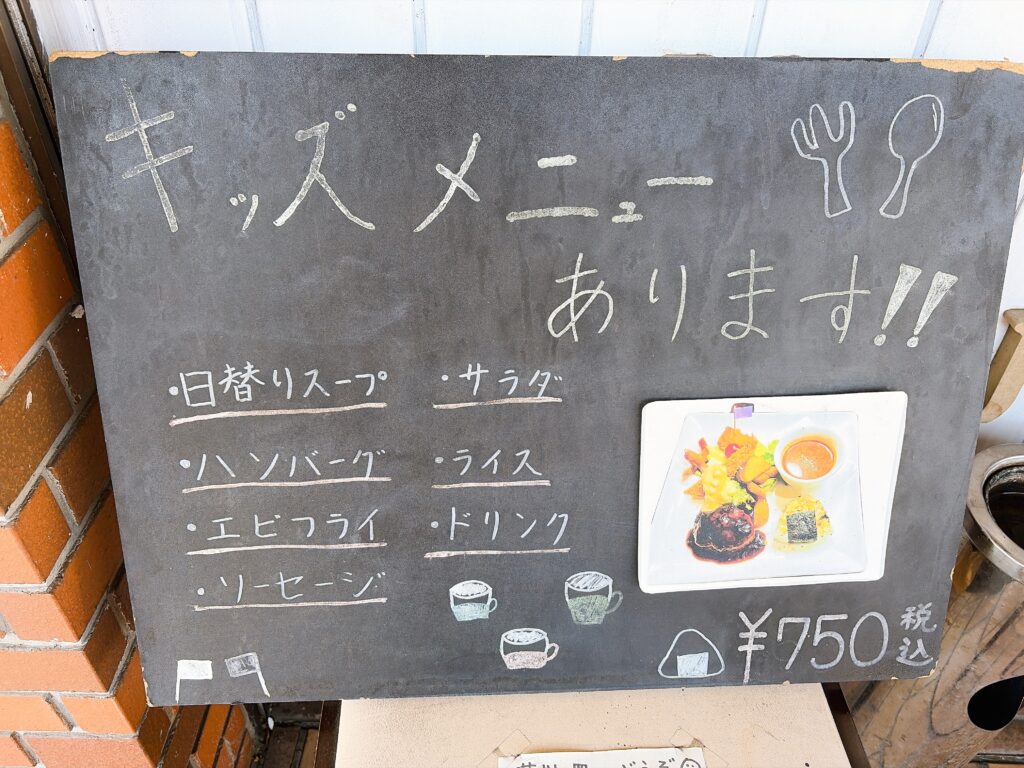 キッズメニュー
あります!!
・日替りスープ
・ハンバーグ
・エビフライ
・ソーセージ
・サラダ
・ライス
・ドリンク
¥750税込